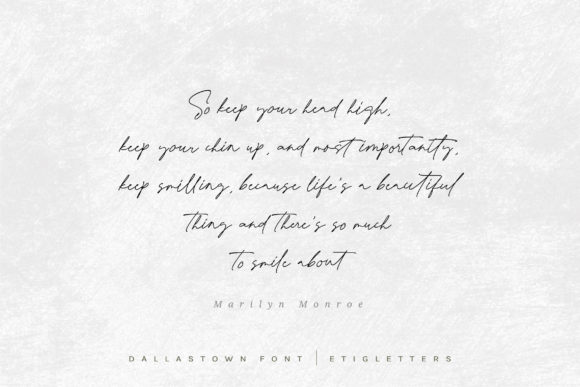 So keep your head high,
keep your chin up, and most importantly,
keep smilling, because life's a beautiful
thing and there's so much
to smile about
Marilyn Monroe
DALLASTOWN FONT | ETIGLETTERS